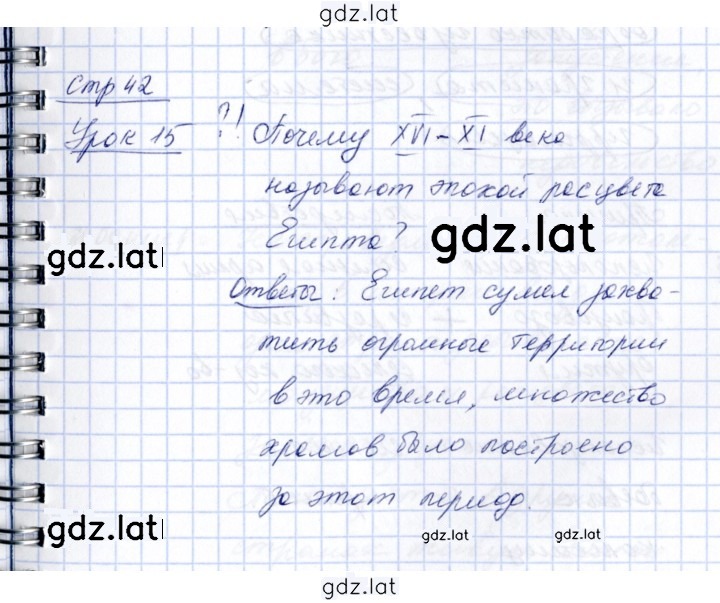 gdz.lat
стр 42
Урок 15
?! Почему XVI – XI века
называют эпохой расцвета
Египта?
gdz.lat
gdz.lat
Ответы: Египет сумел захва-
тить огромные территории
в это время, множество
храмов было построено
за этот период.
gdz.lat
gdz.lat
gdz.lat
gdz.lat